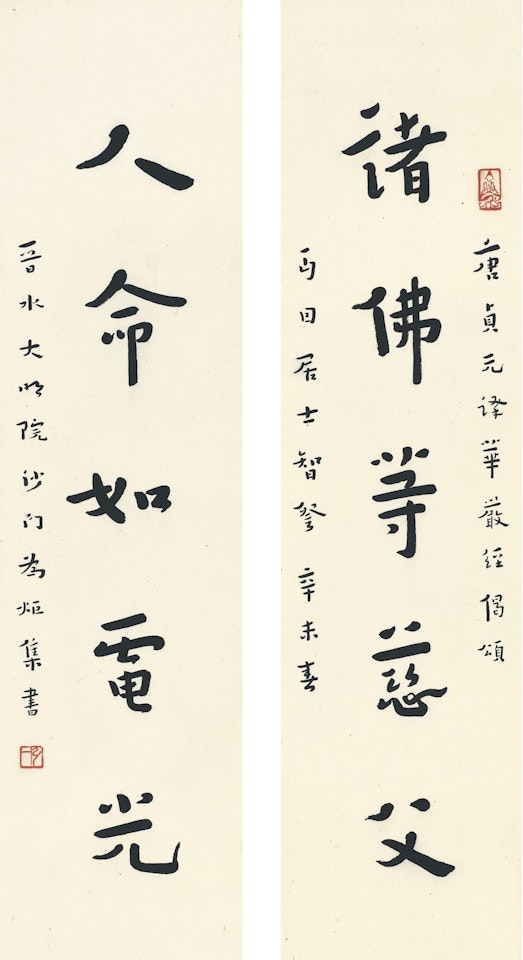 唐貞元譯華嚴經偈頌
諸佛等慈父
丏因居士智 辛未春
人命如電光
晉水大明院沙門為炬集書